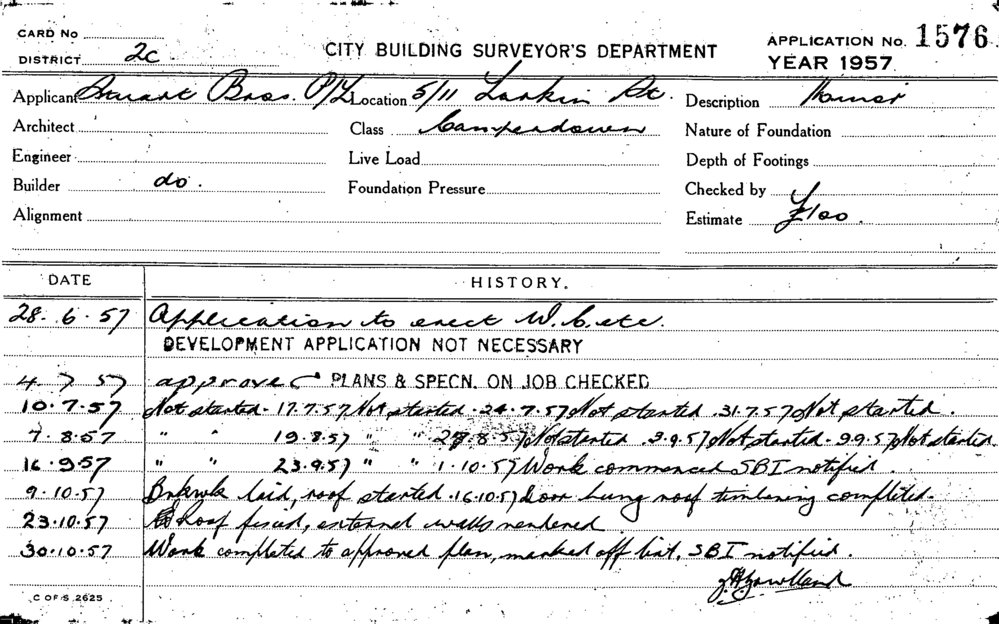 CARD No
DISTRICT 2c.
CITY BUILDING SURVEYOR'S DEPARTMENT
APPLICATION No. 1576
YEAR 1957
Applicant Stuart Bros. P/L Location 5/11 Larkin St. Description Minor
Architect Class Camperdown Nature of Foundation
Engineer Live Load Depth of Footings
Builder do. Foundation Pressure Checked by
Alignment Estimate £100.
DATE HISTORY.
28. 6. 57 Application to erect W.C. etc.
DEVELOPMENT APPLICATION NOT NECESSARY
4 7 57 approved PLANS & SPECN. ON JOB CHECKED
10.7.57 Not started. 17.7.57 Not started. 24.7.57 Not started. 31.7.57 Not started.
7.8.57 " " 19.8.57 " " 28.8.57 Not started. 2.9.57 Not started. 9.9.57 Not started.
16.9.57 " " 23.9.57 " " 1.10.57 Work commenced SBI notified.
9.10.57 Brkwk laid, roof started. 16.10.57 door hung roof timbering completed.
23.10.57 Roof fixed, external walls rendered
30.10.57 Work completed to approved plan, marked off list, SBI notified.
C OF S 2625